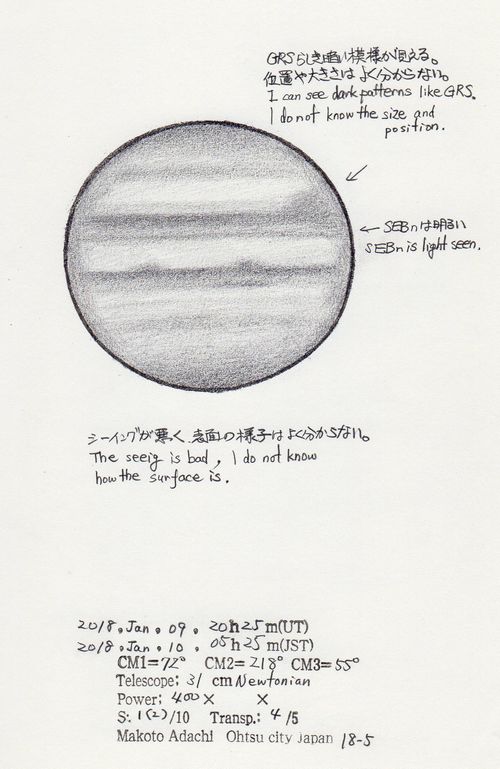 GRSらしき暗い模様が見える。
位置や大きさはよく分からない。
I can see dark patterns like GRS.
I do not know the size and
position.
← SEBnは明るい
SEBn is light seen.
シーイングが悪く、表面の様子はよく分からない。
The seeig is bad, I do not know
how the surface is.
2018, Jan, 09, 20h25m(UT)
2018, Jan, 10, 05h25m(JST)
CM1=72° CM2=218° CM3=55°
Telescope: 31 cm Newtonian
Power: 400× ×
S: 1(2)/10 Transp.: 4/5
Makoto Adachi Ohtsu city Japan 18-5